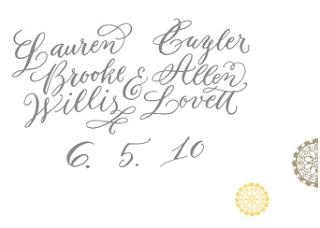 Lauren Cuyler
Brooke & Allen
Willis Lovett
6. 5. 10